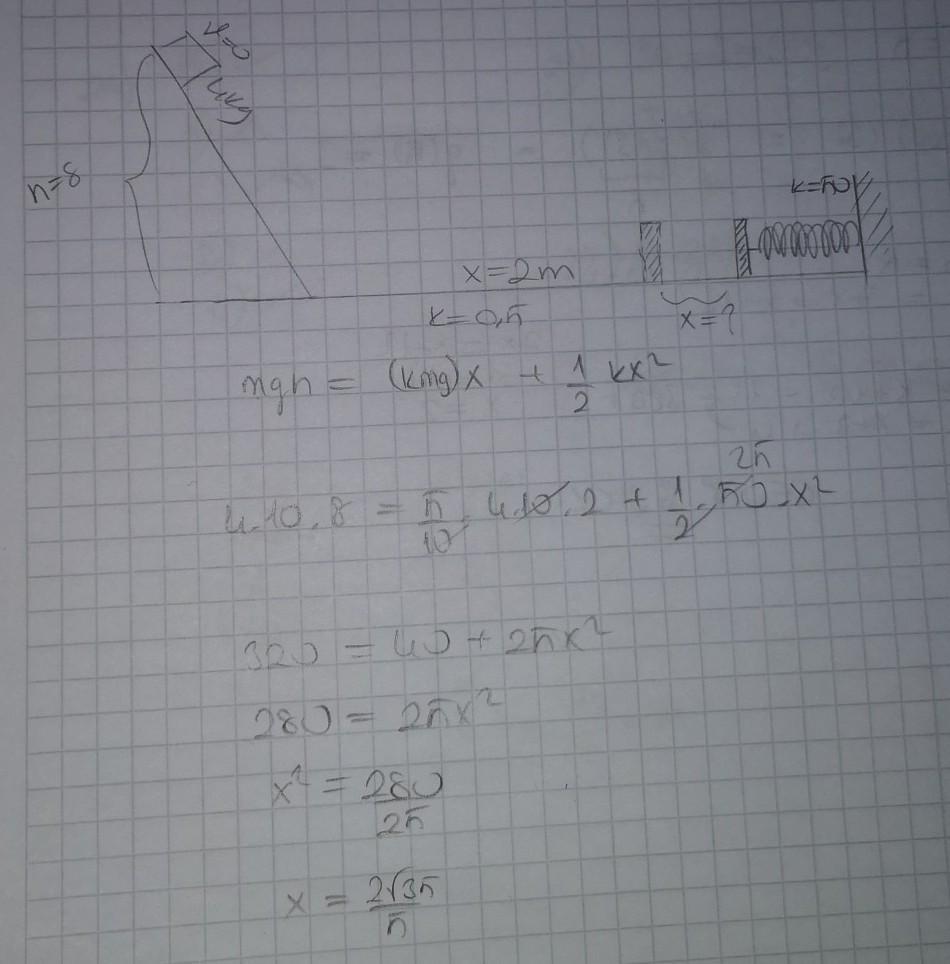 V=0
4kg
h=8
k=50
x=2m
k=0,5
x=?
mgh = (kmg)x + 1/2 kx²
25
4.10.8 = 5/10 . 4.10.2 + 1/2 . 50.x²
320 = 40 + 25x²
280 = 25x²
x² = 280/25
x = 2√35/5